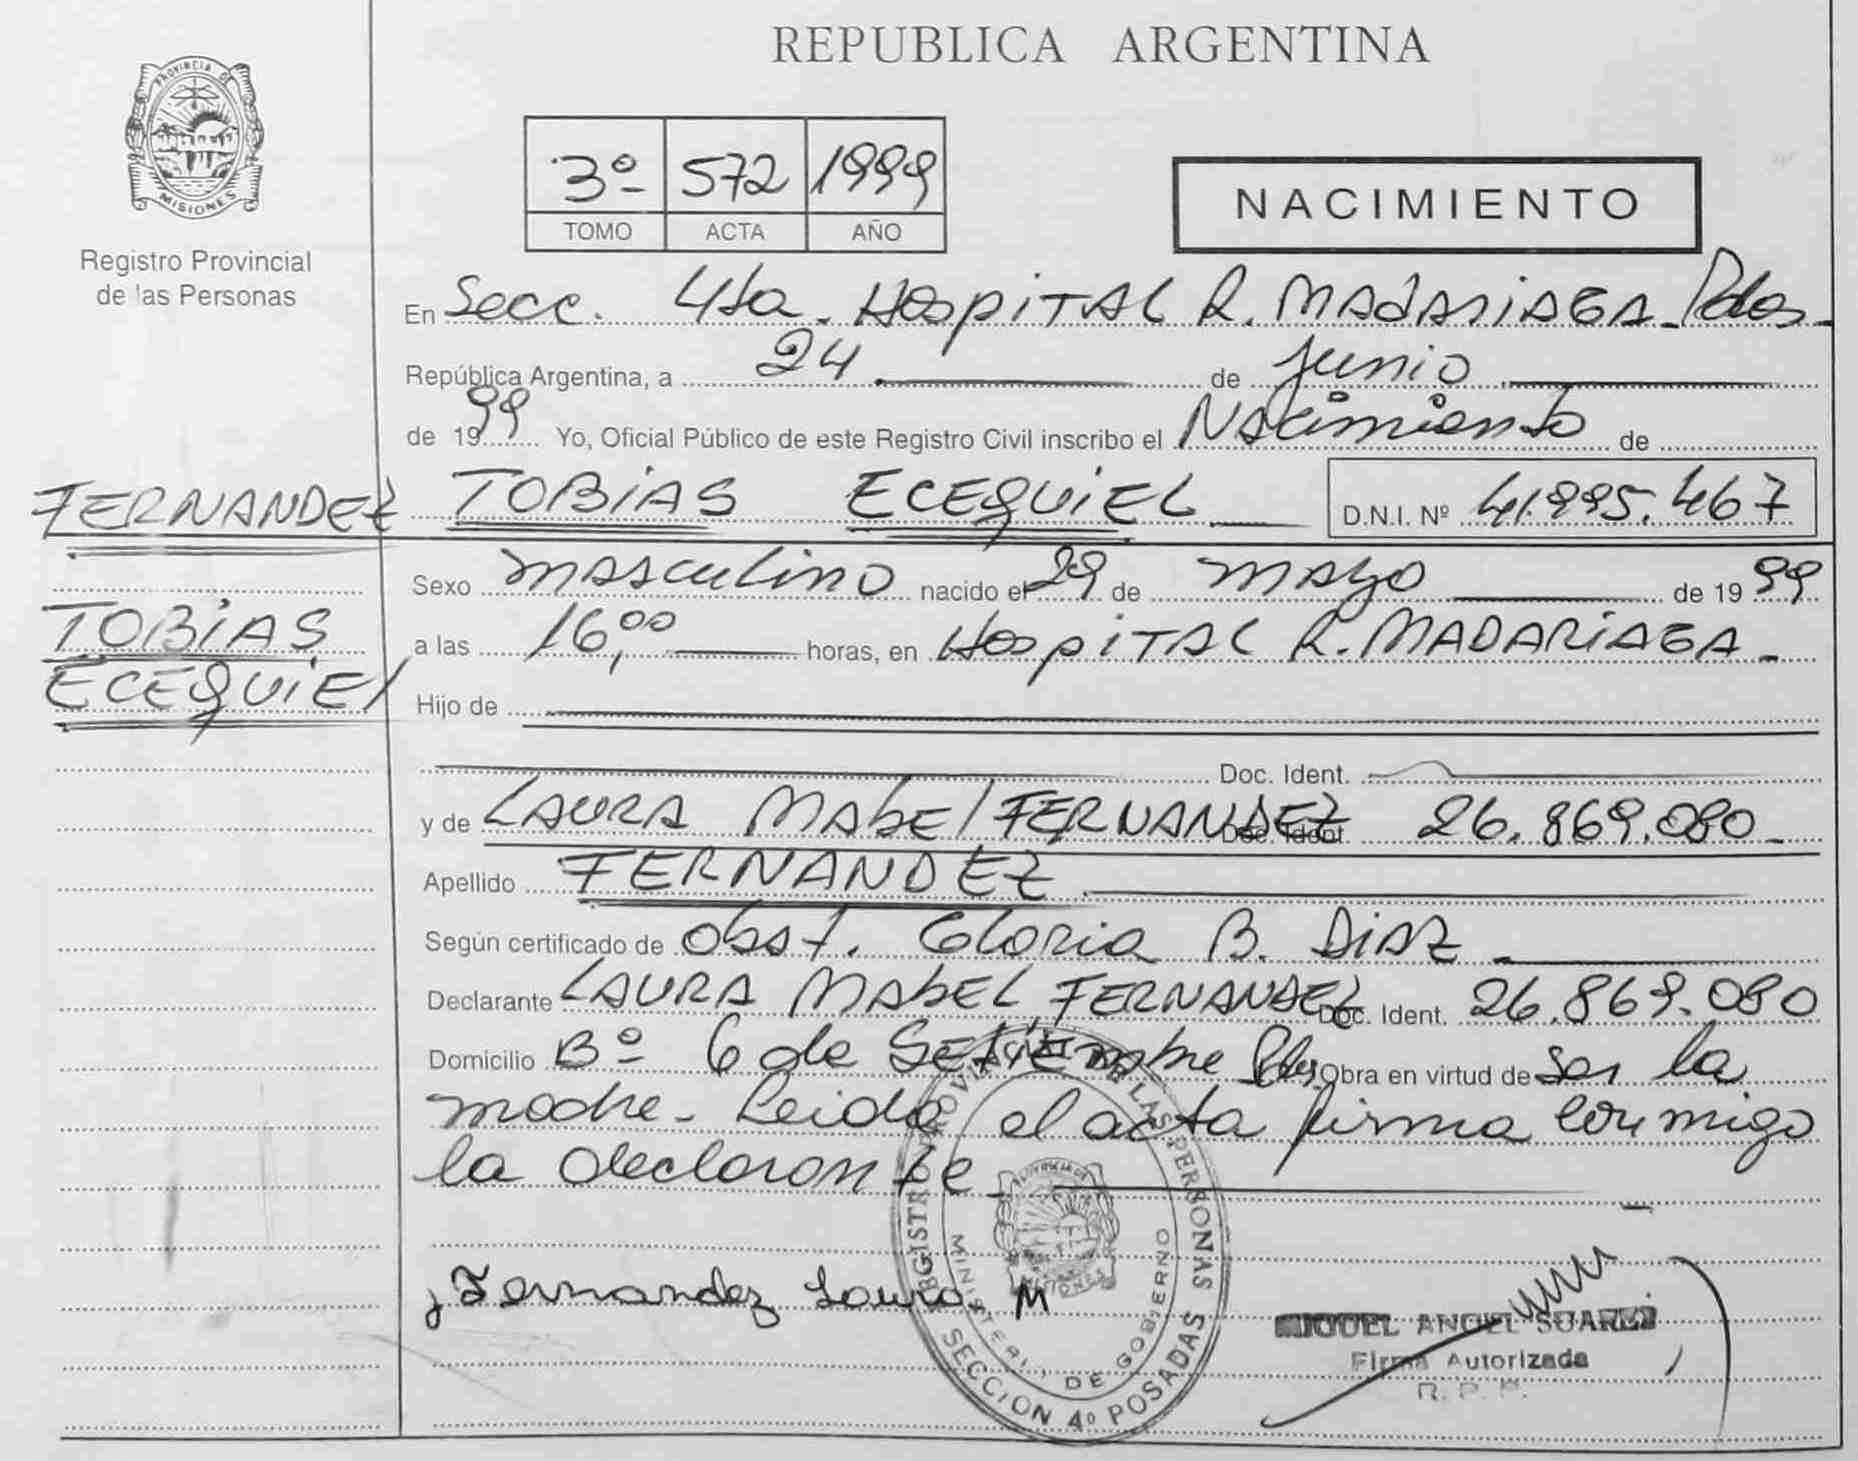 REPUBLICA ARGENTINA
PROVINCIA DE
MISIONES
Registro Provincial
de las Personas
3º 572 1999
TOMO ACTA AÑO
NACIMIENTO
En Secc. 4ta. Hospital R. MADARIAGA - Pdas -
República Argentina, a 24 de junio
de 1999 Yo, Oficial Público de este Registro Civil inscribo el Nacimiento de
FERNANDEZ TOBIAS ECEQUIEL D.N.I. Nº 41.995.467
Sexo masculino nacido el 29 de mayo de 1999
TOBIAS
a las 16,00 horas, en Hospital R. MADARIAGA -
ECEQUIEL
Hijo de
Doc. Ident.
y de LAURA MABEL FERNANDEZ Doc. Ident. 26.869.080 -
Apellido FERNANDEZ
Según certificado de Obst. Gloria B. DIAZ
Declarante LAURA MABEL FERNANDEZ Doc. Ident. 26.869.080
Domicilio Bº 6 de Setiembre Pdas Obra en virtud de ser la
madre - Leida el acta firma conmigo
la declarante
Fernandez Laura M
REGISTRO PROVINCIAL DE LAS PERSONAS
MINISTERIO DE GOBIERNO
SECCION 4º POSADAS
MIGUEL ANGEL SUAREZ
Firma Autorizada
R. P. P.